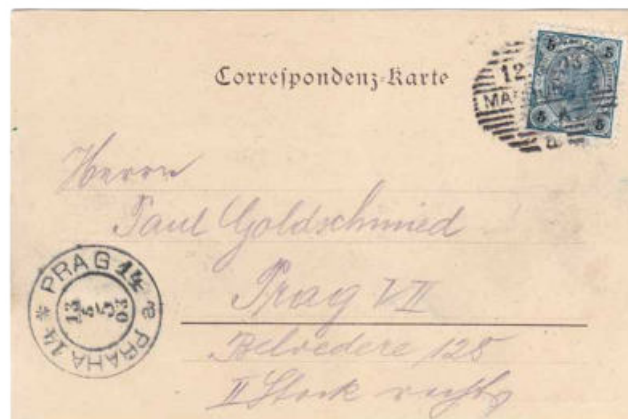 Correſpondenz-Karte
5 5
12. 03
MA
5 5
Herrn
Paul Goldschmied
Prag VII
Belvedere 128
II Stock rechts
PRAG 14
13
5
03
* PRAHA 14 a